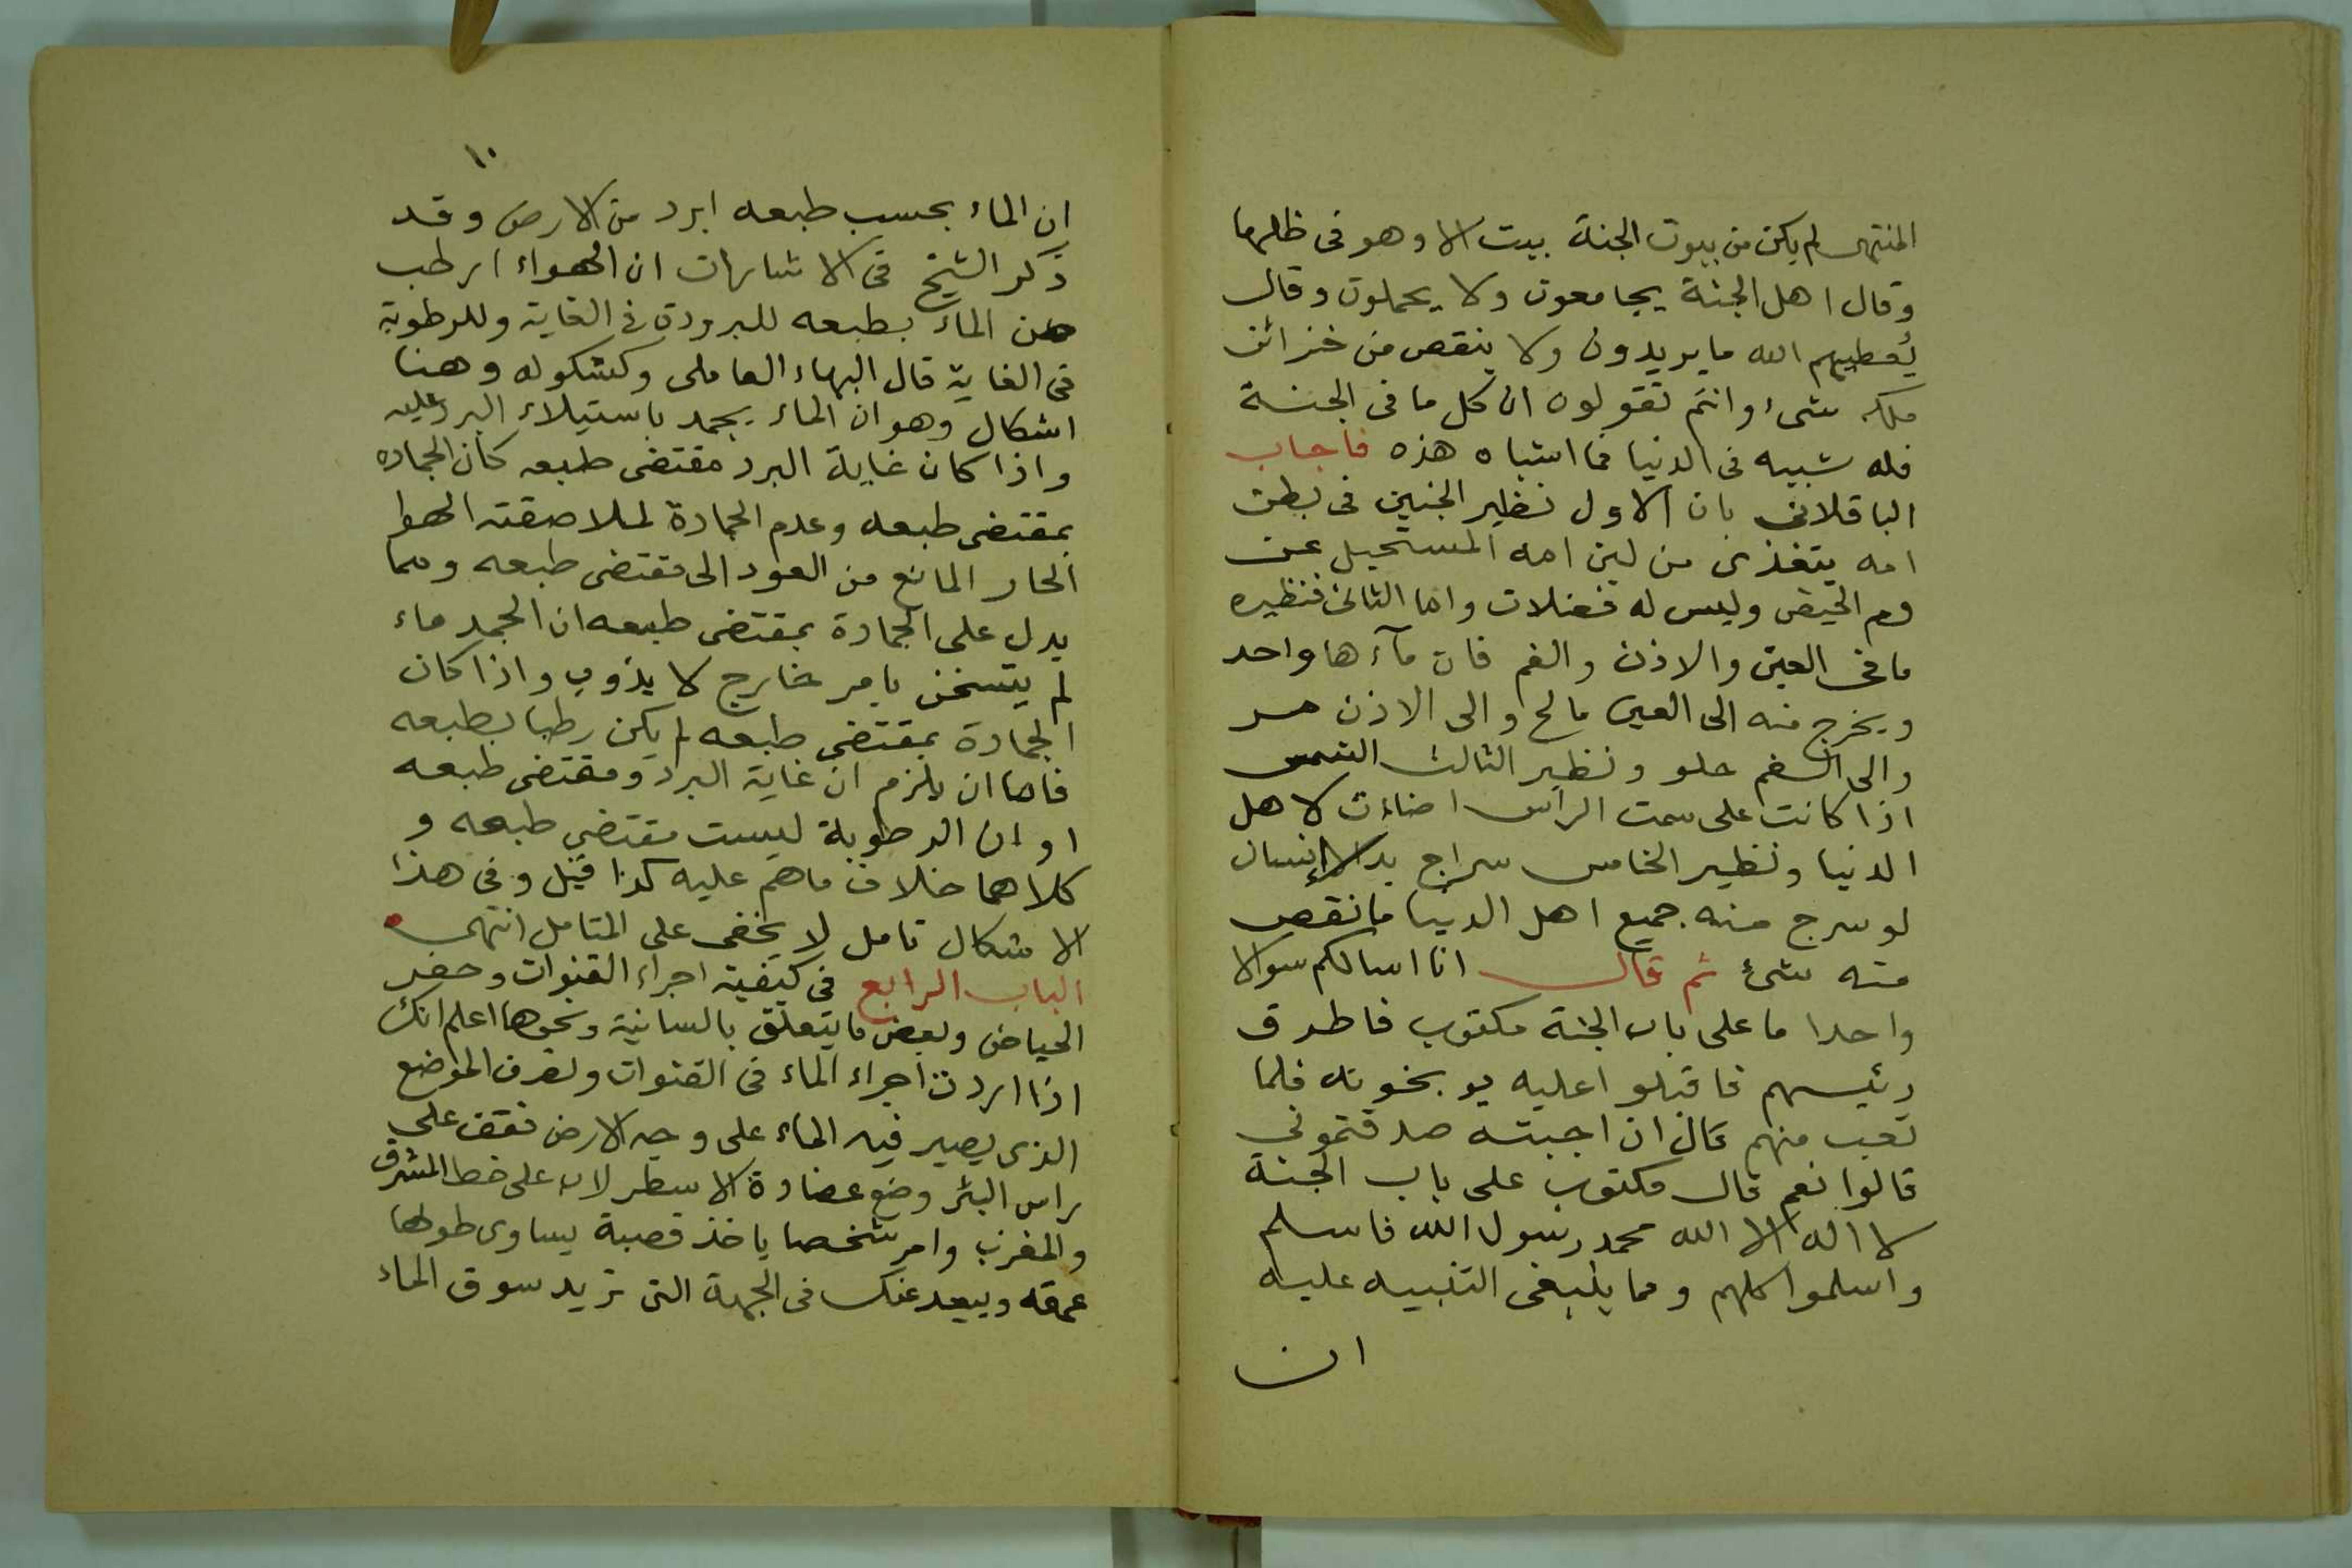 المنتهى لم يكن من بيوت الجنة بيت الا وهو فى ظلها
وقال اهل الجنة يجامعون ولا يحملون وقال
يُعطيهم الله ما يريدون ولا ينقص من خزائن
ملكه شىء وانتم تقولون ان كل ما فى الجنة
فله شبيه فى الدنيا فما اشباه هذه فاجاب
الباقلانى بان الاول نظير الجنين فى بطن
امه يتغذى من لبن امه المستحيل عن
دم الحيض وليس له فضلات واما الثانى فنظيره
ما فى العين والاذن والفم فان مآءها واحد
ويخرج منه الى العين مالح والى الاذن مر
والى الفم حلو ونظير الثالث الشمس
اذا كانت على سمت الراس اضاءت لاهل
الدنيا ونظير الخامس سراج يد الانسان
لو سرج منه جميع اهل الدنيا ما نقص
منه شىء ثم قال انا اسالكم سوالا
واحدا ما على باب الجنة مكتوب فاطرق
رئيسهم فاقبلوا عليه يوبخونه فلما
تعب منهم قال ان اجبته صدقتمونى
قالوا نعم قال مكتوب على باب الجنة
لا اله الا الله محمد رسول الله فاسلم
واسلموا كلهم ومما ينبغى التنبيه عليه
ان
١٠
ان الماء بحسب طبعه ابرد من الارض وقد
ذكر الشيخ فى الاشارات ان الهواء ارطب
من الماء بطبعه للبرودة فى الغاية وللرطوبة
فى الغاية قال البهاء العاملى وكشكوله وهنا
اشكال وهو ان الماء يجمد باستيلاء البرد عليه
واذا كان غاية البرد مقتضى طبعه كان الجماده
بمقتضى طبعه وعدم الجمادة لملاصقته الهوا
الحار المانع من العود الى مقتضى طبعه ومما
يدل على الجمادة بمقتضى طبعه ان الجمد ماء
لم يتسخن بامر خارج لا يذوب واذا كان
الجمادة بمقتضى طبعه لم يكن رطبا بطبعه
فاما ان يلزم ان غاية البرد ومقتضى طبعه
او ان الرطوبة ليست مقتضى طبعه و
كلاهما خلاف ما هم عليه كذا قيل وفى هذا
الاشكال تامل لا يخفى على المتامل انتهى
الباب الرابع فى كيفية اجراء القنوات وحفر
الحياض وبعض ما يتعلق بالسانية ونحوها اعلم انك
اذا اردت اجراء الماء فى القنوات ولعرف الموضع
الذى يصير فيه الماء على وجه الارض فقف على
راس البئر وضع عضادة الاسطرلاب على خط المشرق
والمغرب وامر شخصا ياخذ قصبة يساوى طولها
عمقه ويبعد عنك فى الجهة التى تريد سوق الماء